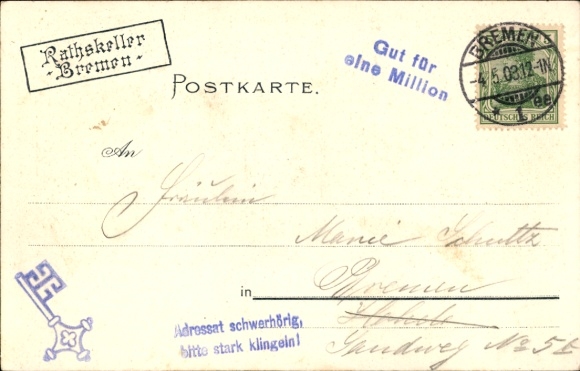 Rathskeller
- Bremen -
Gut für
eine Million
BREMEN
-4.5.03.12-1N.
* 1 ee
DEUTSCHES REICH
POSTKARTE.
An
Fräulein
Marie Schultz
in Bremen
Sandweg No 5
Adressat schwerhörig,
bitte stark klingeln!